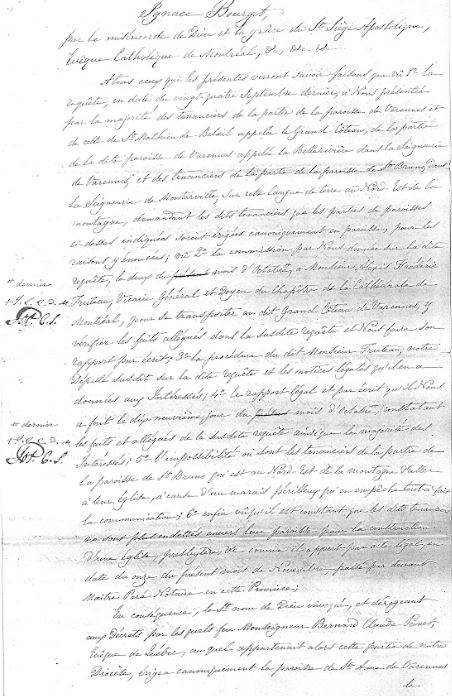 Ignace Bourget,
par la miséricorde de Dieu et la grâce du St Siège Apostolique,
Evêque Catholique de Montréal, &c, &c. &c.
A tous ceux qui les présentes verront savoir faisons que vû 1º la
requête, en date du vingt-quatre Septembre dernier, à Nous présentée
par la majorité des tenanciers de la partie de la paroisse de Varennes et
de celle de St Mathieu de Belœil appelée le Grand Côteau, de la partie
de la dite paroisse de Varennes appelée la Bellerivière dans la Seigneurie
de Varennes; et des tenanciers de la partie de la paroisse de St Bruno, dans
la Seigneurie de Montarville, sur cette langue de terre au Nord-Est de la
montagne, demandant les dits tenanciers que les parties de paroisses
ci-dessus indiquées soient érigées canoniquement en paroisse, pour les
raisons y énoncées; vû 2º la commission par Nous donnée sur la dite
requête, le deux du mois d'Octobre, à Monsieur Alexis Frédéric
Truteau, Vicaire Général et Doyen du Chapitre de la Cathédrale de
Montréal, pour se transporter au dit Grand Côteau de Varennes, y
vérifier les faits allégués dans la susdite requête et Nous faire son
rapport par écrit; 3º la procédure du dit Monsieur Truteau, notre
Député susdit sur la dite requête et les notices légales qu'il en a
données aux Intéressés; 4º le rapport légal et par écrit qu'il Nous
a fait le dix-neuvième jour du mois d'Octobre, constatant
les faits et allégués de la susdite requête ainsi que la majorité des
Intéressés; 5º l'impossibilité où sont les tenanciers de la partie de
la paroisse de St Bruno qui est au Nord-Est de la montagne d'aller
à leur église, à cause d'un marais périlleux qui en empêche tout à fait
la communication; 6º enfin vû qu'il est constant que les dits tenanciers
ne sont plus endettés envers leur paroisse pour la construction
d'une église, presbytère, &c comme il appert par acte légal en
date du onze du présent mois de Novembre, passé par devant
Maître Paré Notaire en cette Province;
En conséquence, le St nom de Dieu invoqué, et dérogeant
aux Décrets par lesquels feu Monseigneur Bernard Claude Panet,
Evêque de Québec, au quel appartenait alors cette partie de notre
Diocèse, érigea canoniquement la paroisse de Ste Anne de Varennes
le
dernier
dernier